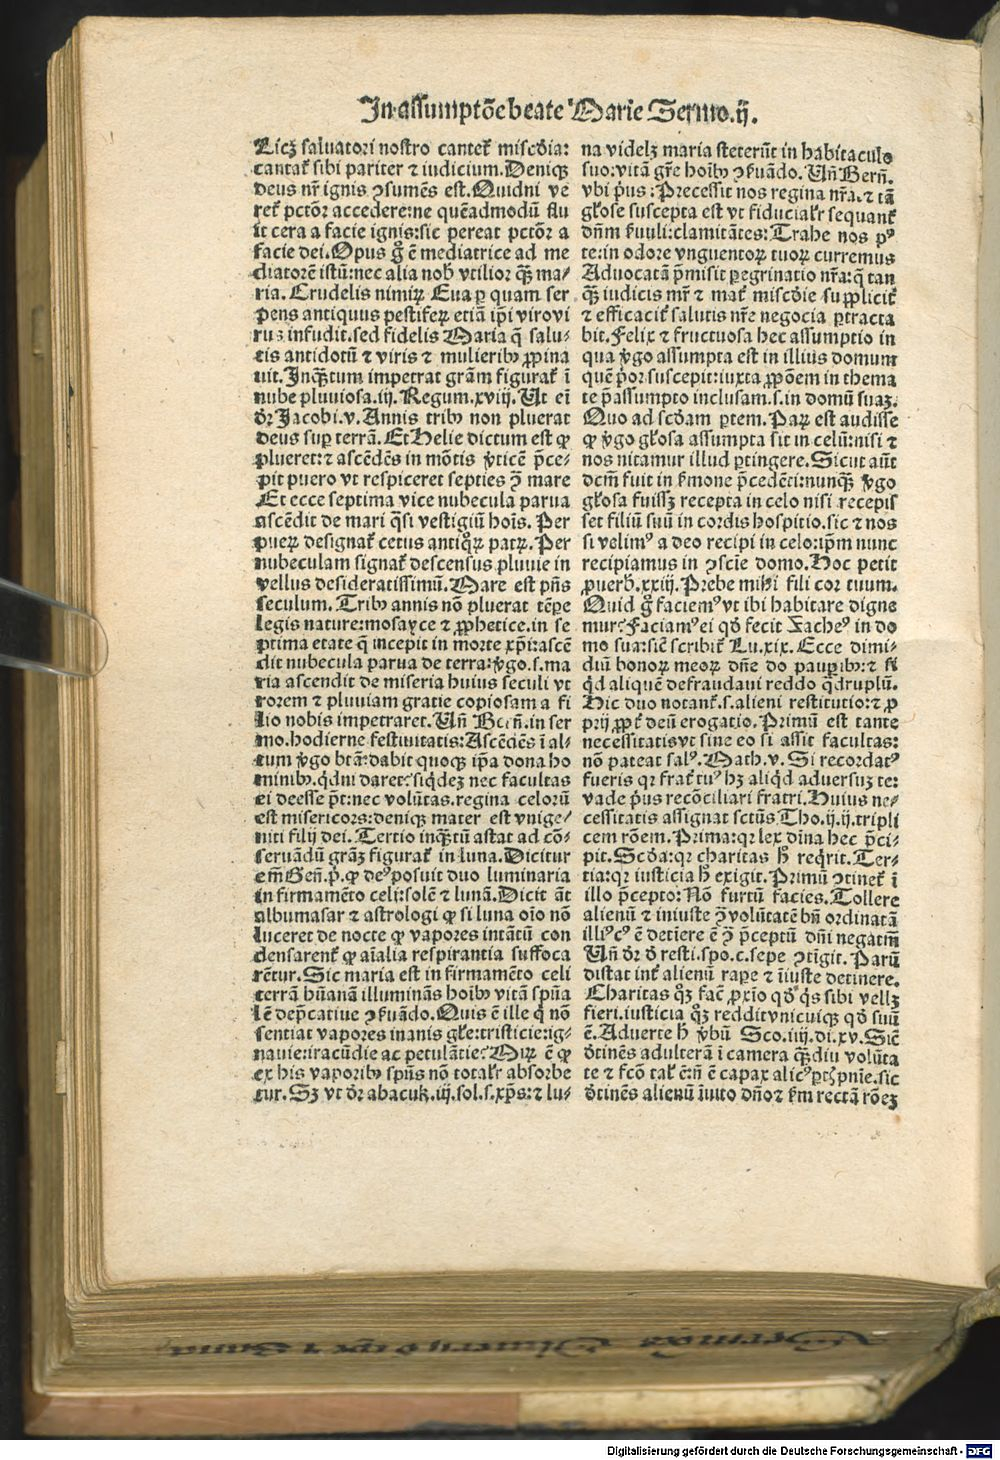 In assumptōe beate Marie Sermo.ij.
Licꝫ saluatori nostro cantet᷑ miscḋia:
cantat᷑ sibi pariter ⁊ iudicium. Deniqꝫ
deus nr̄ ignis ꝯsumēs est. Quidni ve
ret᷑ pctōr accedere: ne quēadmodū flu
it cera a facie ignis: sic pereat pctōr a
facie dei. Opus g̊ ē mediatrice ad me
diatorē istū: nec alia nob̄ vtilior qꝫ̄ ma⸗
ria. Crudelis nimiꝝ Eua ꝑ quam ser
pens antiquus pestifeꝝ etiā ip̄i viro vi
rus infudit. sed fidelis Maria q̄ salu⸗
tis antidotū ⁊ viris ⁊ mulierib⁹ ꝓpina
uit. Inqꝫ̄tum impetrat gr̄am figurat᷑ ī
nube pluuiosa. iij. Regum. xviij. Ut eī
dr̄ Jacobi. v. Annis trib⁹ non pluerat
deus suꝑ terrā. Et Helie dictum est ꝙ
plueret: ⁊ ascēdēs in mōtis v̓ticē p̄ce⸗
pit puero vt respiceret septies ꝯ̄ mare
Et ecce septima vice nubecula parua
ascēdit de mari q̄si vestigiū hoīs. Per
pueꝝ designat᷑ cetus antiq̊ꝝ patꝝ. Per
nubeculam signat᷑ descensus pluuie in
vellus desideratissimū. Mare est pn̄s
seculum. Trib⁹ annis nō pluerat tēpe
legis nature: mosayce ⁊ ꝓphetice. in se
ptima etate q̄ incepit in morte xp̄i: ascē
dit nubecula parua de terra: v̓go. s. ma
ria ascendit de miseria huius seculi vt
rorem ⁊ pluuiam gratie copiosam a fi
lio nobis impetraret. Un̄ Bern̄. in ser
mo. hodierne festiuitatis: Ascēdēs ī al⸗
tum v̓go btā: dabit quoqꝫ ip̄a dona ho
minib⁹. q̇dni daret? siq̇deꝫ nec facultas
ei deesse p̄t: nec volūtas. regina celorū
est misericors: deniqꝫ mater est vnige⸗
niti filij dei. Tertio inqꝫ̄tū astat ad cō⸗
seruādū gr̄aꝫ figurat᷑ in luna. Dicitur
em̄ Gen̄. p̊. ꝙ de⁹ posuit duo luminaria
in firmamēto celi: solē ⁊ lunā. Dicit āt
albumasar ⁊ astrologi ꝙ si luna oīo nō
luceret de nocte ꝙ vapores intātū con
densarent᷑ ꝙ aīalia respirantia suffoca
rētur. Sic maria est in firmamēto celi
terrā hūanā illuminās hoīb⁹ vitā spūa
lē dep̄catiue ꝯẜuādo. Quis ē ille q̇ nō
sentiat vapores inanis gl̄e: tristicie: ig⸗
nauie: iracūdie ac petulātie? Miꝝ ē ꝙ
ex his vaporib⁹ spūs nō totalr̄ absorbe
tur. Sꝫ vt dr̄ abacuk. iij. sol. s. xp̄s: ⁊ lu⸗
na videlꝫ maria steterūt in habitaculo
suo: vitā gr̄e hoīb⁹ ꝯẜuādo. Un̄ Bern̄.
vbi p̓us: Precessit nos regina nr̄a. ⁊ tā
gl̄ose suscepta est vt fiducialr̄ sequant᷑
dn̄m ẜuuli: clamitātes: Trahe nos p⁹
te: in odore vnguentoꝝ tuoꝝ curremus
Aduocatā p̄misit ꝑegrinatio nr̄a: q̄ tan
qꝫ̄ iudicis mr̄ ⁊ mat᷑ miscḋie suppliciť
⁊ efficacit᷑ salutis nr̄e negocia ꝑtracta
bit. Felix ⁊ fructuosa hec assumptio in
qua v̓go assumpta est in illius domum
quē p̓or suscepit: iuxta ꝓpōem in thema
te p̄assumpto inclusam. s. in domū suaꝫ.
Quo ad scḋam ꝑtem. Paꝝ est audisse
ꝙ v̓go gl̄osa assumpta sit in celū: nisi ⁊
nos nitamur illud ꝑtingere. Sicut aūt
dcm̄ fuit in ẜmone p̄cedēti: nunqꝫ̄ v̓go
gl̄osa fuissꝫ recepta in celo nisi recepis
set filiū suū in cordis hospitio. sic ⁊ nos
si velim⁹ a deo recipi in celo: ip̄m nunc
recipiamus in ꝯscīe domo. Hoc petit
ꝓuerb̄. xxiij. Prebe mihi fili cor tuum.
Quid g̊ faciem⁹ vt ibi habitare digne
mur? Faciam⁹ ei qḋ fecit Zache⁹ in do
mo sua: sicē scribit᷑ Lu. xix. Ecce dimi⸗
diū bonoꝝ meoꝝ dn̄e do pauꝑib⁹: ⁊ si
q̇d aliquē defraudaui reddo q̄druplū.
Hic duo notant᷑. s. alieni restitutio: ⁊ ꝓ
prij ꝓpt̓ deū erogatio. Primū est tante
necessitatis vt sine eo si assit facultas:
nō pateat sal⁹. Math. v. Si recordat⁹
fueris qꝛ frat᷑ tu⁹ hꝫ aliq̇d aduersuꝫ te:
vade p̓us recōciliari fratri. Huius ne⸗
cessitatis assignat sctūs Tho. ij. ij. tripli
cem rōem. Prima: qꝛ lex diīna hec p̄ci⸗
pit. Scḋa: qꝛ charitas h̄ req̇rit. Ter⸗
tia: qꝛ iusticia h̄ exigit. Primū ꝯtinet᷑ ī
illo p̄cepto: Nō furtū facies. Tollere
alienū ⁊ iniuste ꝯ̄ volūtatē bn̄ ordinatā
illi⁹ c⁹ ē detīere ē ꝯ̄ p̄ceptū dn̄i negatm̄
Un̄ dr̄ ḋ resti. spo. c. sepe ꝯtīgit. Parū
distat int᷑ alienū raꝑe ⁊ īiuste detinere.
Charitas q̊ꝫ fac̄ ꝓxīo qḋ q̇s sibi vellꝫ
fieri. iusticia q̊ꝫ reddit vnicuiqꝫ qḋ suū
ē. Aduerte h̄ v̓bū Sco. iiij. di. xv. Sicē
ḋtinēs adulterā ī camera qꝫ̄diu volūta
te ⁊ fcō tal᷑ ē: n̄ ē capax alic⁹ ꝑtꝭ pnīe. sic
ḋtinēs alienū īuito dn̄o ⁊ ẜm rectā rōeꝫ
Digitalisierung gefördert durch die Deutsche Forschungsgemeinschaft - DFG